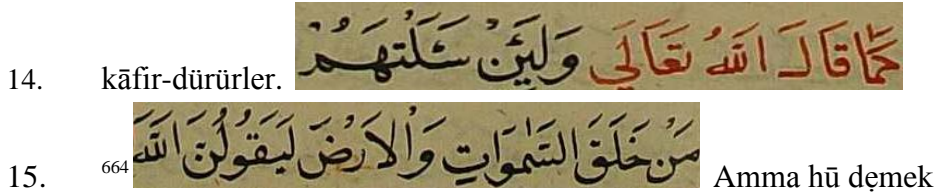 14. kāfir-dürürler. كَمَا قَالَ اللّٰهُ تَعَالَي وَلَئِنْ سَئَلْتَهُمْ
15. 664 مَنْ خَلَقَ السَّمٰوَاتِ وَالْاَرْضَ لَيَقُولُنَّ اللّٰهُ Amma hū dẹmek